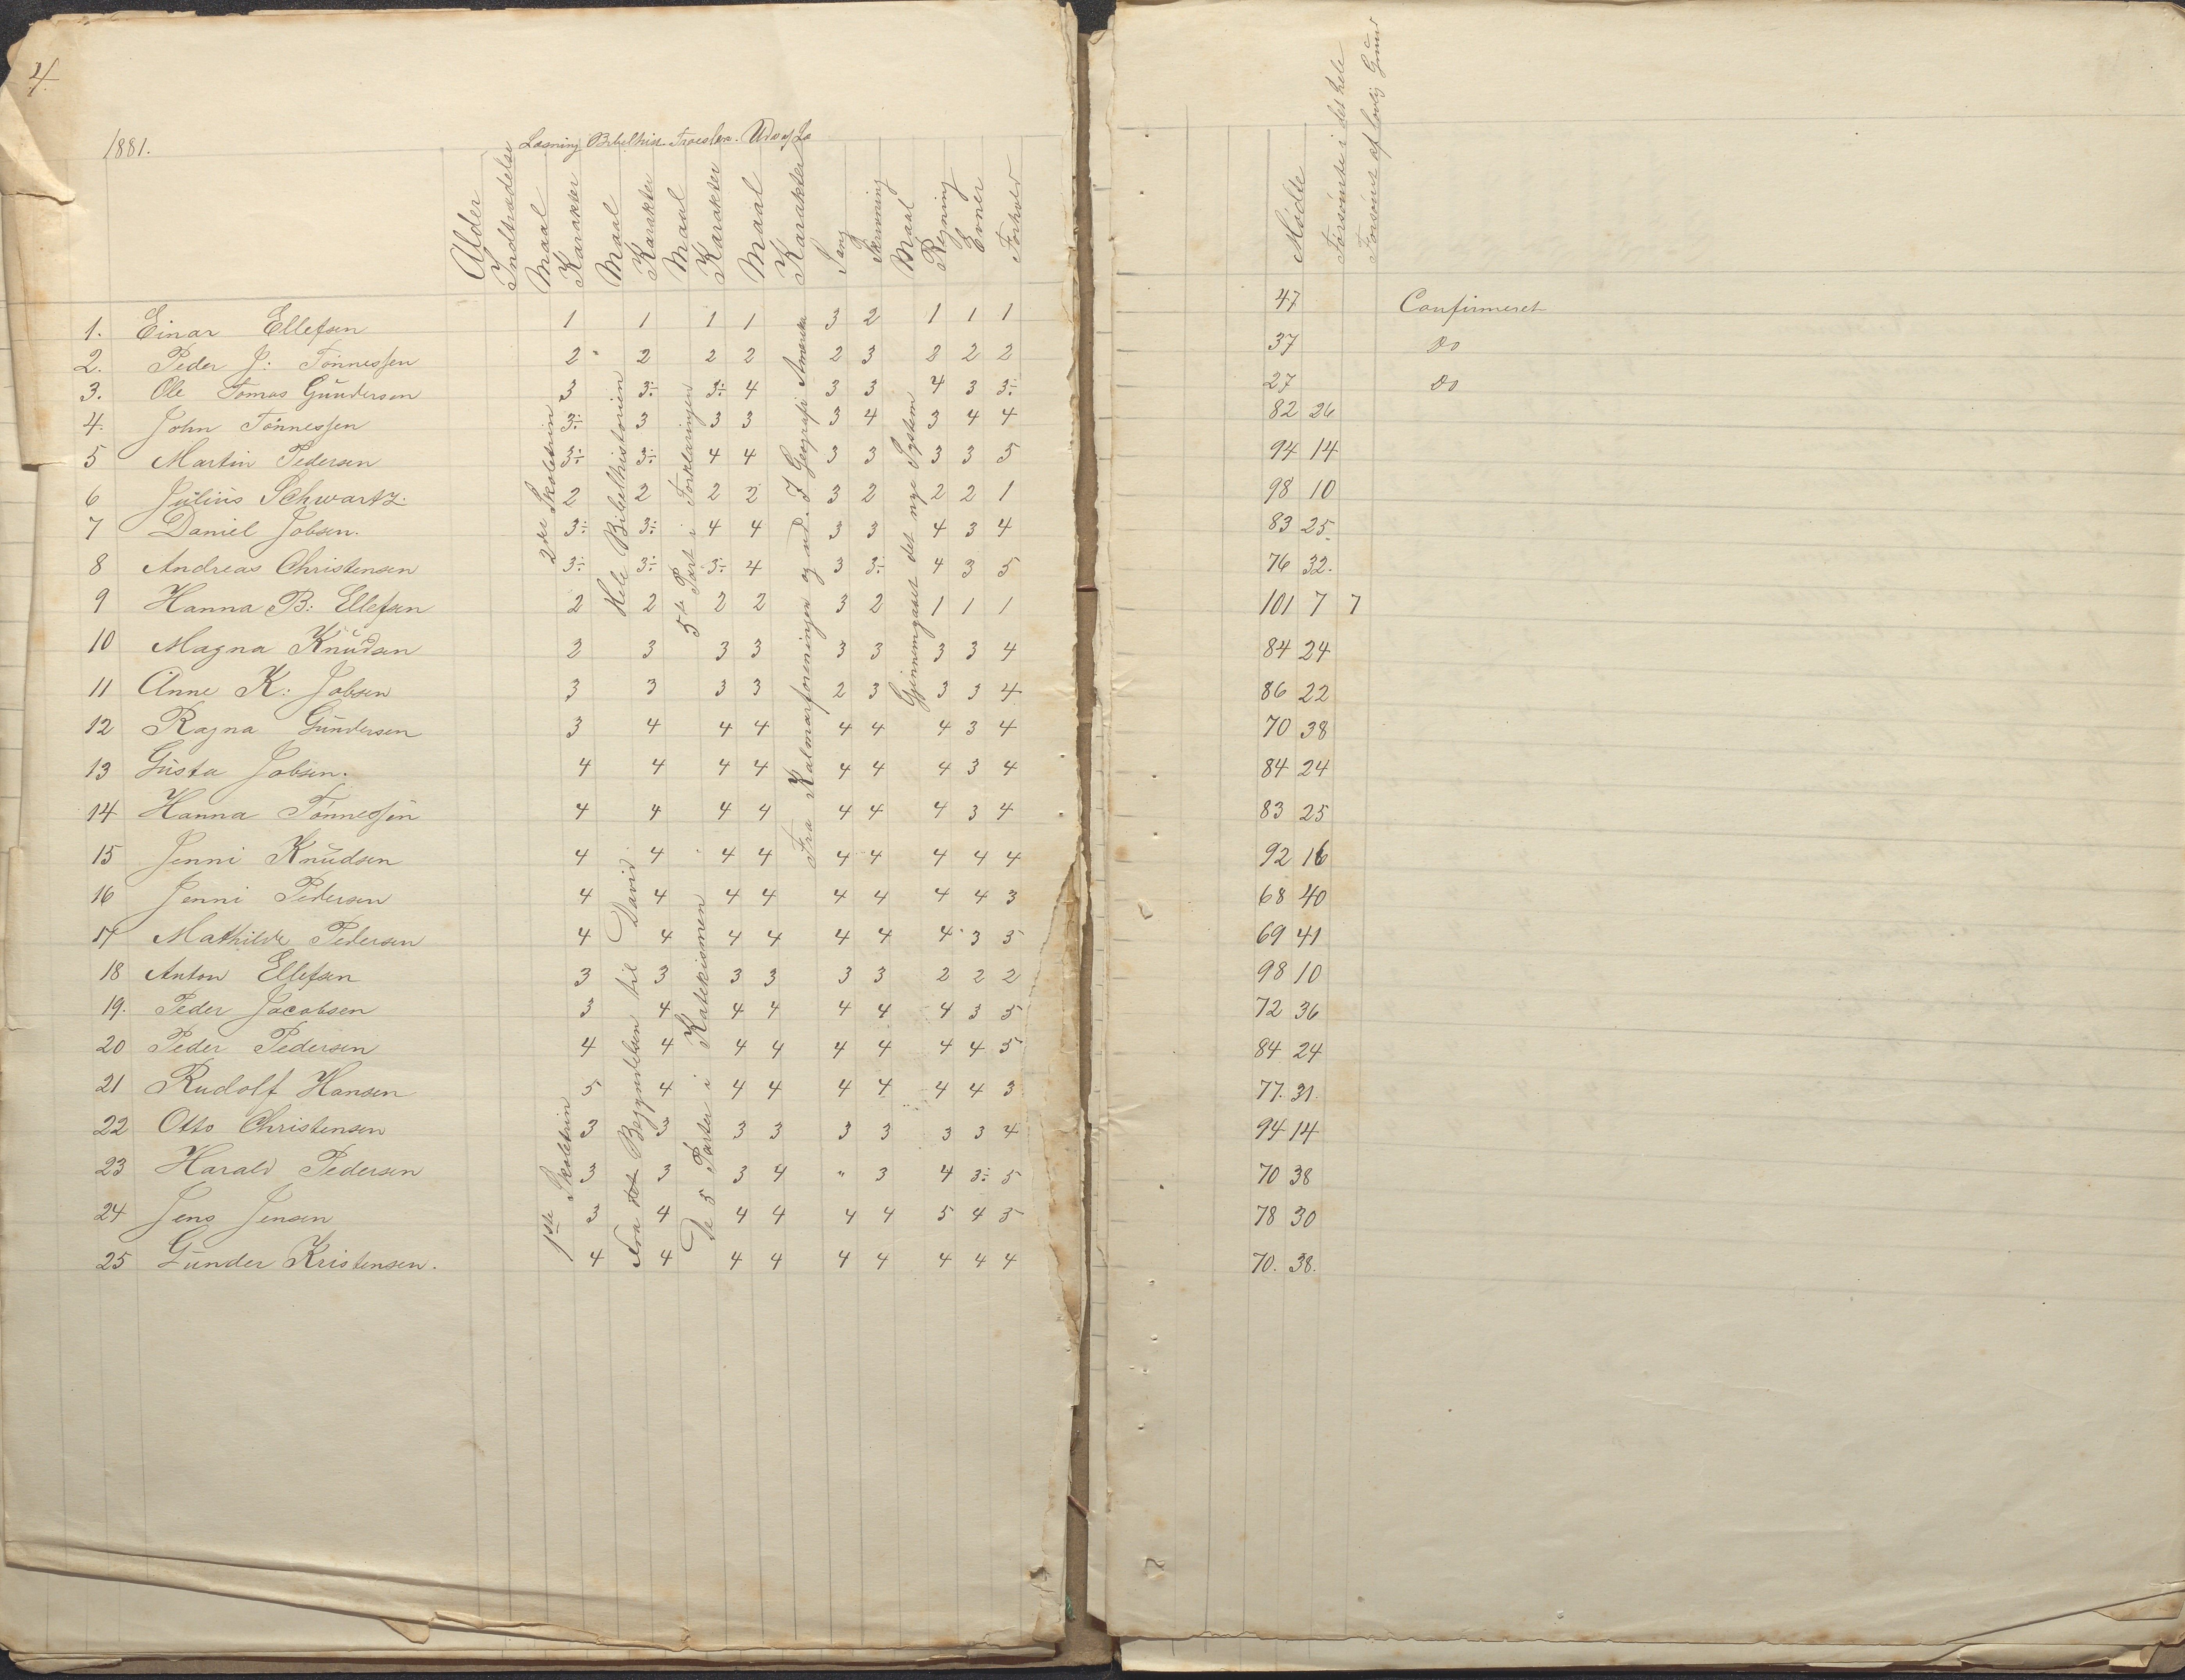 4.
1881.
Læsning Bibelhist. Troeslære. Udv. af Læ
Alder
Indtrædelse
Maal
Karakter
Maal
Karakter
Maal
Karakter
Maal
Karakter
Sang
Skrivning
Maal
Regning
Evner
Forhold
Mødte
Forsømte i det hele
Forsømt af lovlig Grund
1. Einar Ellefsen 1 1 1 1 3 2 1 1 1 47 Confirmeret
2. Peder J: Tønnesen 2 2 2 2 2 3 2 2 2 37 Do
3. Ole Tomas Gundersen 3 3÷ 3÷ 4 3 3 4 3 3÷ 27 Do
4. John Tønnesen 3÷ 3 3 3 3 4 3 4 4 82 26
5 Martin Pedersen 3÷ 3÷ 4 4 3 3 3 3 5 94 14
6 Julius Schwartz. 2 2 2 2 3 2 2 2 1 98 10
7 Daniel Jobsen. 3÷ 3÷ 4 4 3 3 4 3 4 83 25.
8 Andreas Christensen 3÷ 3÷ 3÷ 4 3 3÷ 4 3 5 76 32.
9 Hanna B: Ellefsen 2 2 2 2 3 2 1 1 1 101 7 7
10 Magna Knudsen 2 3 3 3 3 3 3 3 4 84 24
11 Anne K: Jobsen 3 3 3 3 2 3 3 3 4 86 22
12 Ragna Gundersen 3 4 4 4 4 4 4 3 4 70 38
13 Gusta Jobsen. 4 4 4 4 4 4 4 3 4 84 24
14 Hanna Tønnesen 4 4 4 4 4 4 4 3 4 83 25
15 Jenni Knudsen 4 4 4 4 4 4 4 4 4 92 16
16 Jenni Pedersen 4 4 4 4 4 4 4 4 3 68 40
17 Mathilde Pedersen 4 4 4 4 4 4 4 3 5 69 41
18 Anton Ellefsen 3 3 3 3 3 3 2 2 2 98 10
19. Peder Jacobsen 3 4 4 4 4 4 4 3 5 72 36
20 Peder Pedersen 4 4 4 4 4 4 4 4 5 84 24
21 Rudolf Hansen 5 4 4 4 4 4 4 4 3 77. 31.
22 Otto Christensen 3 3 3 3 3 3 3 3 4 94 14
23 Harald Pedersen 3 3 3 4 " 3 4 3÷ 5 70 38
24 Jens Jensen 3 4 4 4 4 4 5 4 5 78 30
25 Gunder Kristensen. 4 4 4 4 4 4 4 4 4 70. 38.
2det Skoletrin
Hele Bibelhistorien
5te Part i Forklaringen
Fra Kalmarforeningen og ud. I Geografi Amerika
Gjennemgaaet det nye System
1ste Skoletrin
Fra det Begyndelsen til David
De 5 Parter i Katekismen